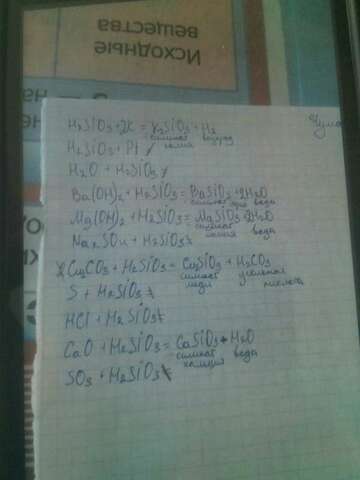 Исходные
вещества
H₂SiO₃ + 2K = K₂SiO₃ + H₂
силикат калия водород
H₂SiO₃ + Pt ≠
H₂O + H₂SiO₃ ≠
Ba(OH)₂ + H₂SiO₃ = BaSiO₃ + 2H₂O
силикат бария вода
Mg(OH)₂ + H₂SiO₃ = MgSiO₃ + 2H₂O
силикат магния вода
Na₂SO₄ + H₂SiO₃ ≠
CuCO₃ + H₂SiO₃ = CuSiO₃ + H₂CO₃
силикат меди угольная кислота
S + H₂SiO₃ ≠
HCl + H₂SiO₃ ≠
CaO + H₂SiO₃ = CaSiO₃ + H₂O
силикат кальция вода
SO₃ + H₂SiO₃ ≠